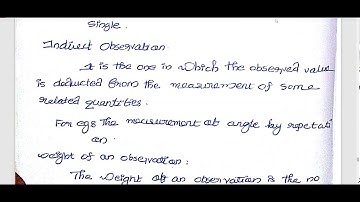 Single.
Indirect Observation
It is the one in which the observed value
is deducted from the measurement of some
related quantities.
For egs The measurement of angle by repetati
on.
weight of an observation:
The Weight of an observation is the no